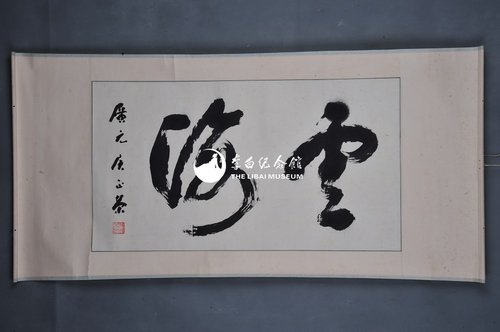 雲海
廣元
李白纪念馆
THE LIBAI MUSEUM